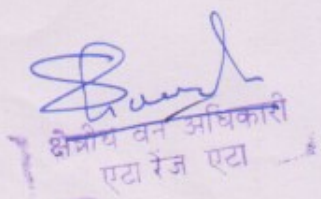 क्षेत्रीय वन अधिकारी
एटा रेंज एटा